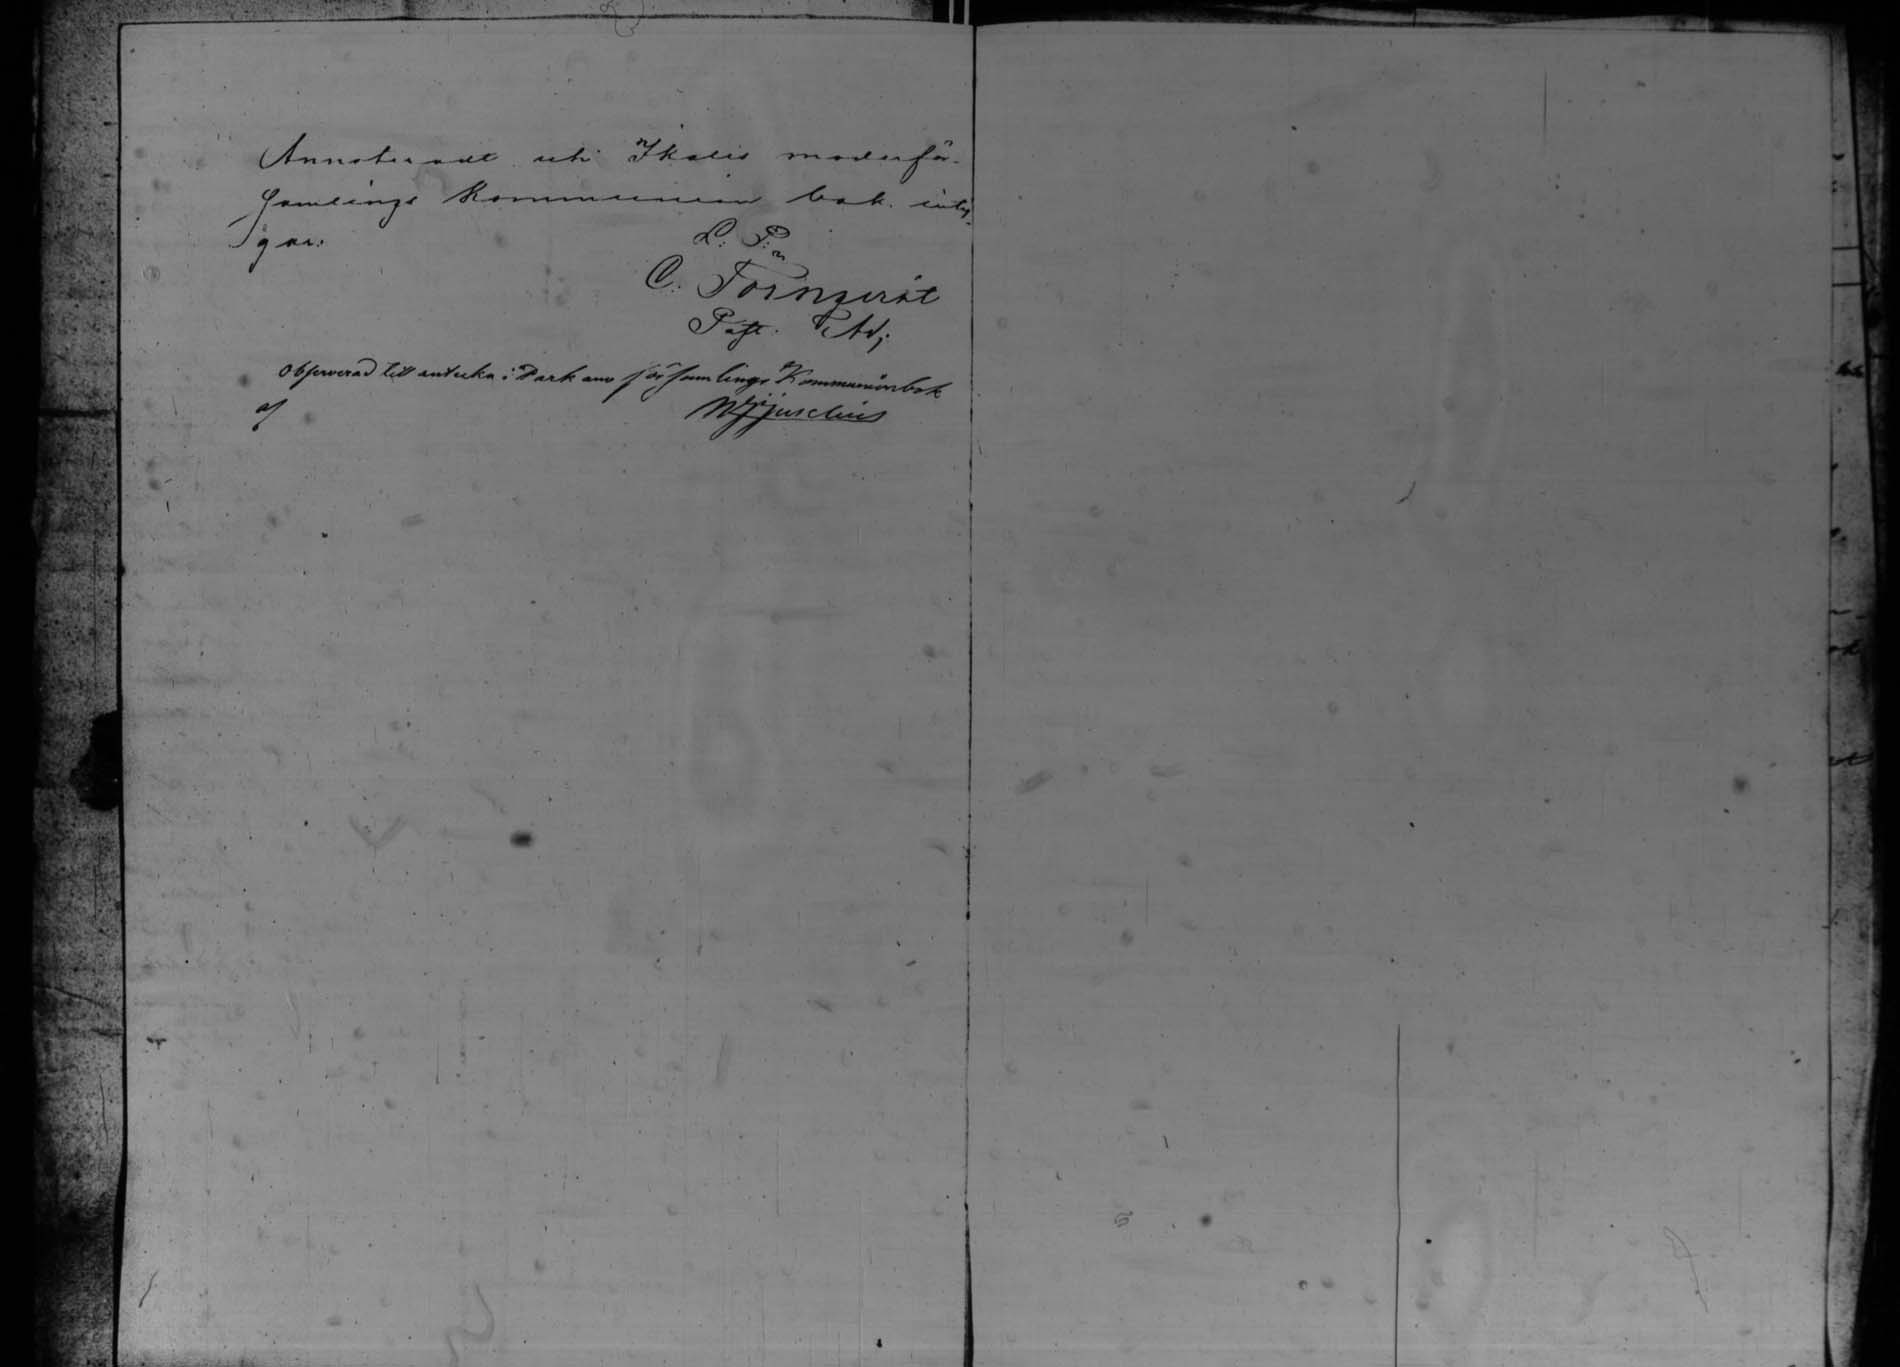 Annoteradt uti Ikalis moderför-
samlings Kommunion bok. inty-
gar:
L. P.
C. Törnqvist
Past. Adj
Observerad till anteckn i Parkano församlings Kommunionbok
af